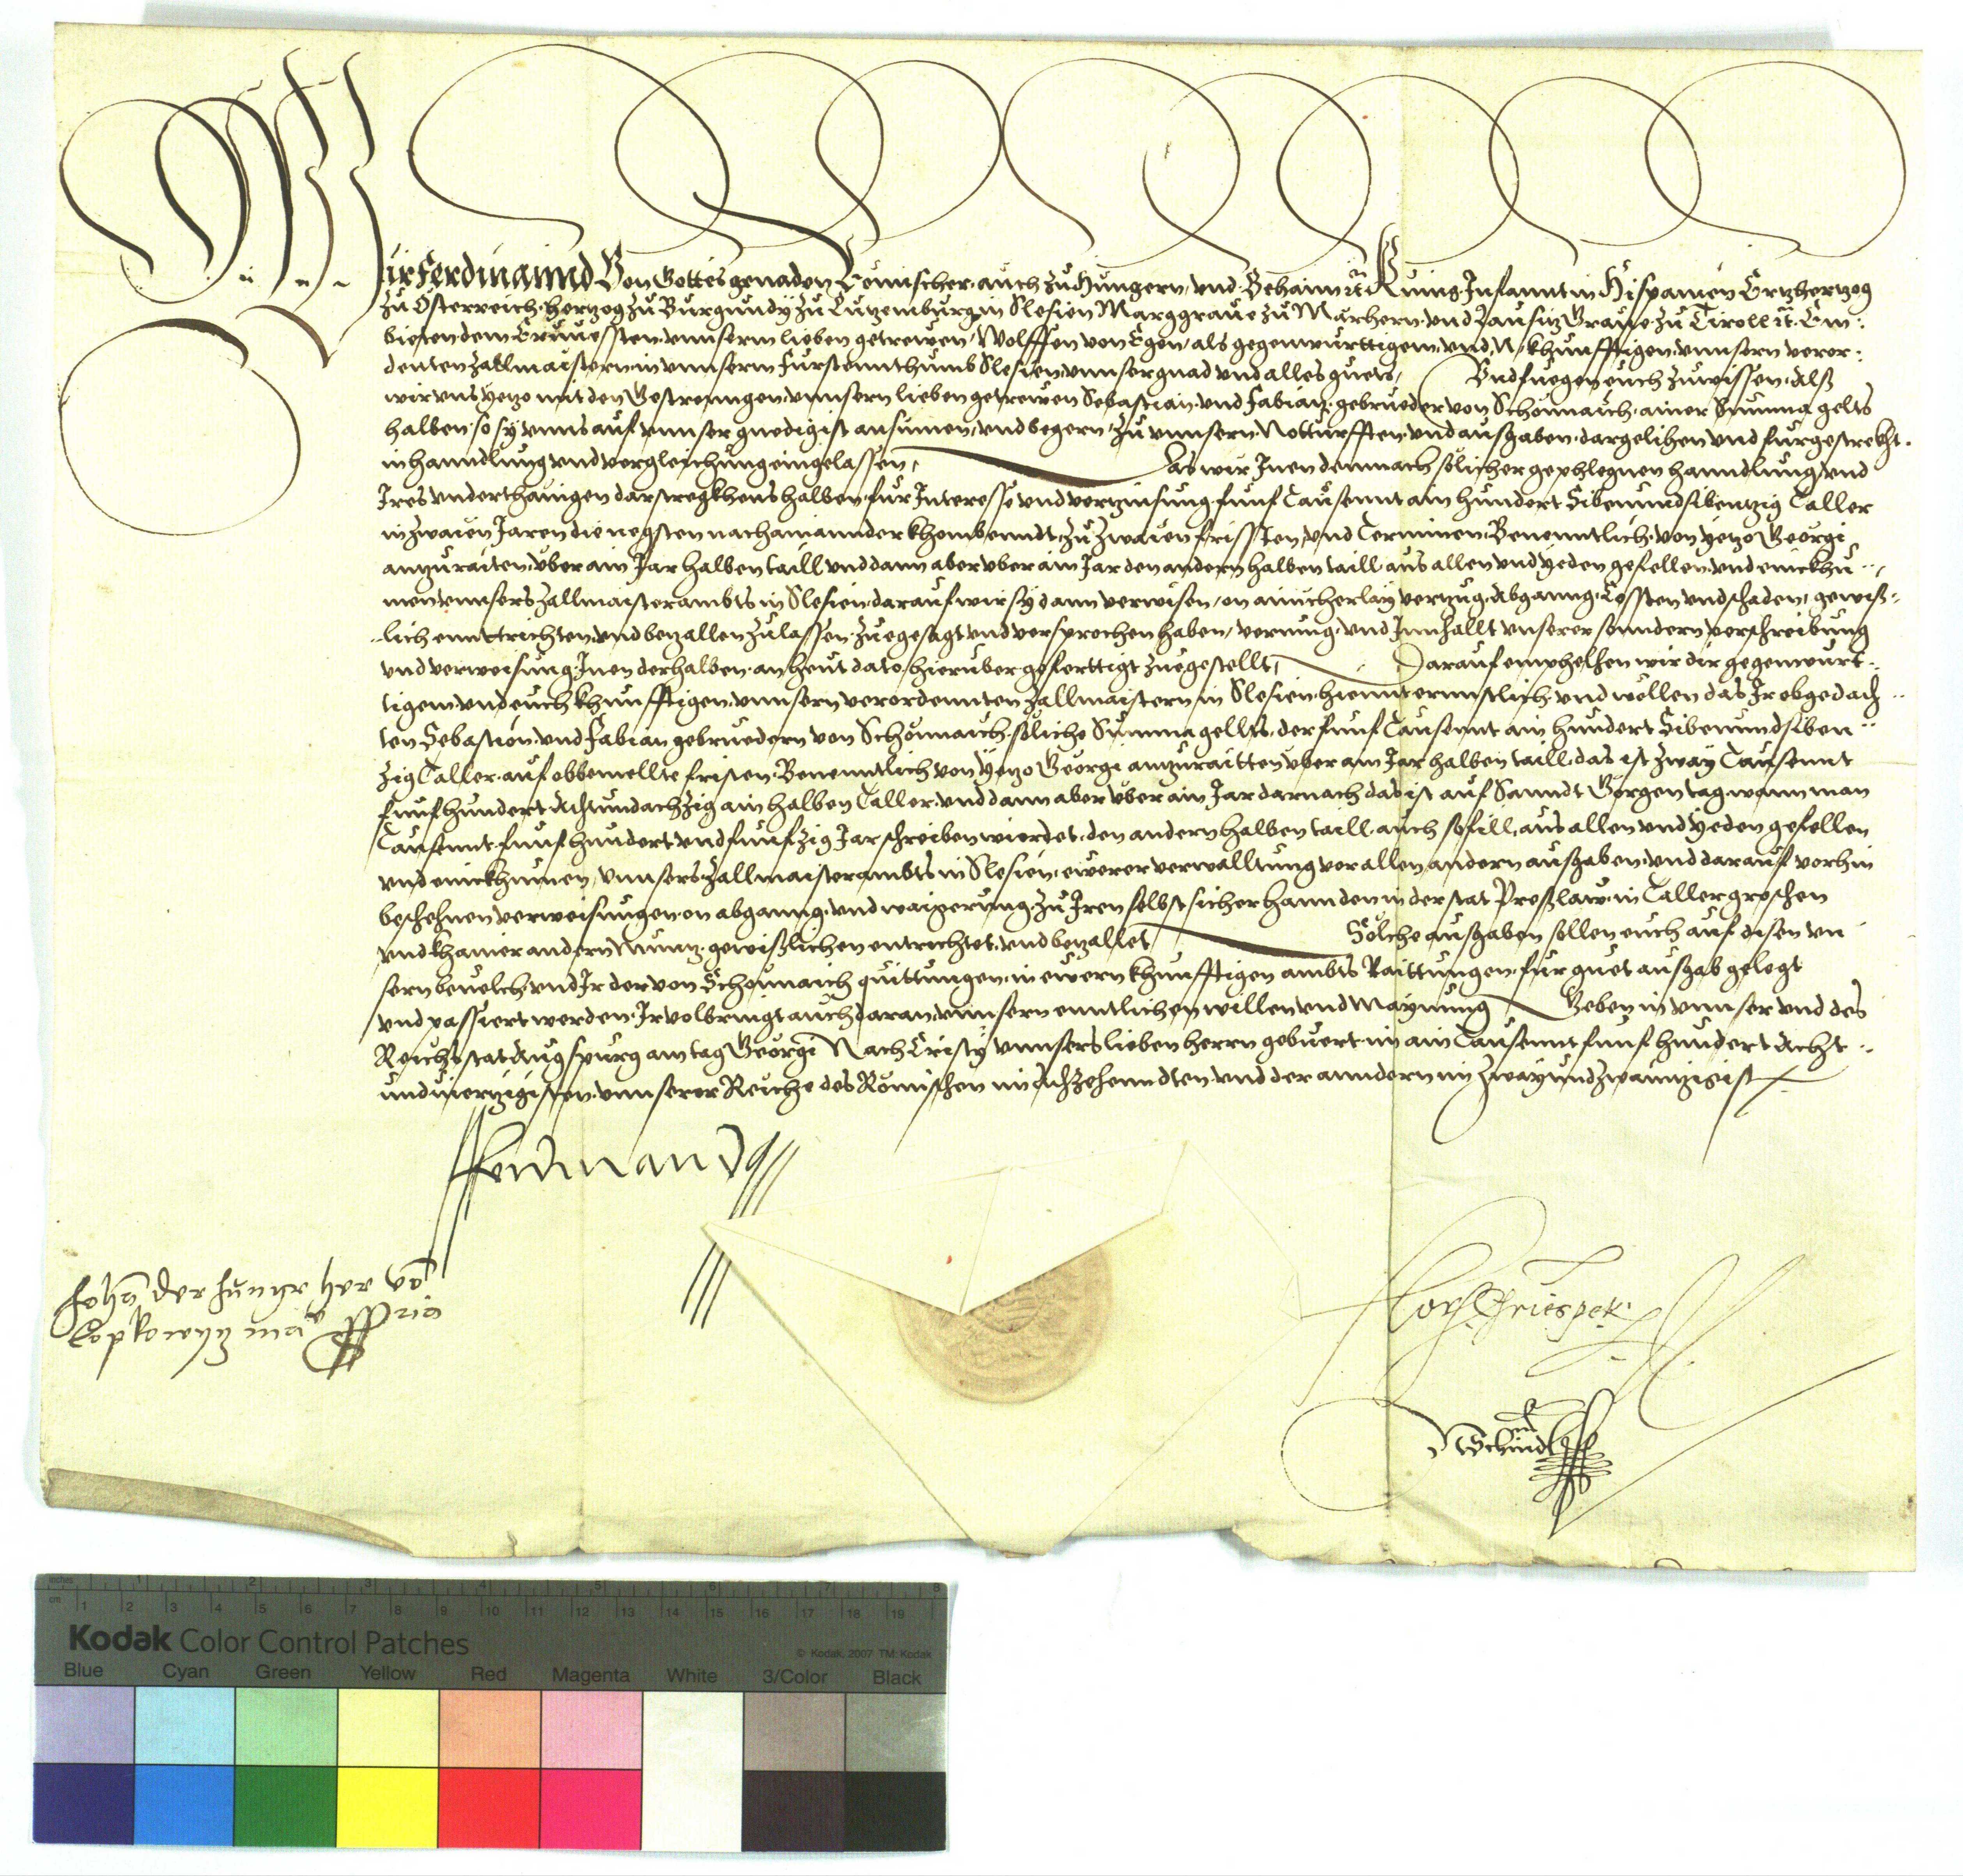 Wir Ferdinannd Von Gottes genaden Römischer auch zu Hungern, vnd Behaim rc. Kunig Infannt in Hispanien Ertzhertzog
zu Österreich. Hertzog zu Burgundj zu Lutzemburg in Slesien Marggraue zu Märhern. vnd Lausitz Graue zu Tiroll rc. Em:
bieten dem Ernuessten vnnserm lieben getrewen, Wolffen von Egen, als gegenwurttigem, vnd N. khunfftigen, vnnsern veror:
denten zallmaistern in vnnserm Furstennthumb Slesien vnnser gnad vnd alles guets, Vnd fuegen euch zuwissen. Alß
wir vns yetzo mit den Gestrenngen, vnnsern lieben getrewen Sebastian vnd Fabian, gebrueder von Schönnaich. ainer Summa gelts
halben so sy vnns auf vnnser gnedigist ansinnen, vnd begern zu vnnsern Notturfften vnd ausgaben. dargelihen vnd furgestrekht.
in hanndlung vnd vergleichung eingelassen, Das wir Inen demnach sölicher gephlegnen hanndlung, vnd
Ires vnderthänigen darstregkhens halben, fur Interesse vnd vertzinsung. funf Tausennt ain hundert Sibenundsibentzig Taller
in zwaien Jaren die negsten nachainannder khombenndt, zu zwaien frissten, vnd Terminen. Benenntlich. von yetzo Georgi
antzuraiten, vber ain Jar halben taill vnd dann aber vber ain Jar den andern halben taill aus allen vnd yeden gefellen vnd einckhu..
men vnnsers zallmaisterambts in Slesien. darauf wir sy dann verwisen, on ainicherlay vertzug. Abganng. Cossten vnd schaden, gewiß:
..lich enntrichten, vnd betzallen zulassen. zuegesagt vnd versprochen haben, vermug. vnd Innhallt vnserer sonndern verschreibung
vnd verweisung. Inen derhalben. an heut dato, hieruber gefertigt zuegestellt, Darauf emphelhen wir dir gegenwurt..
tigem. vnd euch khunfftigen. vnnsern verordennten zallmaistern in Slesien. hiemit ernnstlich. vnd wöllen das Ir obgedach..
ten Sebastian vnd Fabian gebruedern von Schönnaich, söliche Summa gellts, der funf Tausennt ain hundert Sibenundsiben..
zig Taller auf obbemellte fristen. Benenntlich von yetzo Georgi antzuraitten vber ain Jar halben taill. das ist zway Tausennt
funfhundert Achtundachzig ain halben Taller. vnd dann aber vber ain Jar darnach das ist auf Sannd Görgen tag. wann man
Tausennt funfhundert vnd funfzig Jar schreiben wierdet. den andern halben taill. auch souill, aus allen vnd yeden gefellen
vnd einckhumen, vnnsers zallmaisterambts in Slesien, ewerer verwalltung vor allen andern ausgaben. vnd darauf vorhin
beschehnen verweisungen. on abganng. vnd waigerung. zu Iren selbst sicher hannden in der stat Preßlaw. in Tallergroschen
vnd khainer andern Muntz. gewißlichen entrichtet vnd betzallet Solche ausgaben sollen euch auf disen vn
sern beuelch. vnd Ir der von Schönnaich quittungen, in ewern khunfftigen ambts Raittungen. fur guet ausgab gelegt
vnd passiert werden. Ir volbringt auch daran. vnnsern enntlichen willen vnd maynung Geben in vnnser vnd des
Reichs stat Augspurg am tag Georgi Nach Cristj vnnsers lieben herrn geburt. im ain Tausennt funfhundert Acht..
undviertzigisten. vnnserer Reiche des Römischen im Achzehenndten. vnd der anndern im zwayundzwaintzigist
Ferdinand
Johan der Junger her von
Lopkowytz
Flor Griespek
Kodak Color Control Patches
© Kodak, 2007 TM: Kodak
Blue Cyan Green Yellow Red Magenta White 3/Color Black